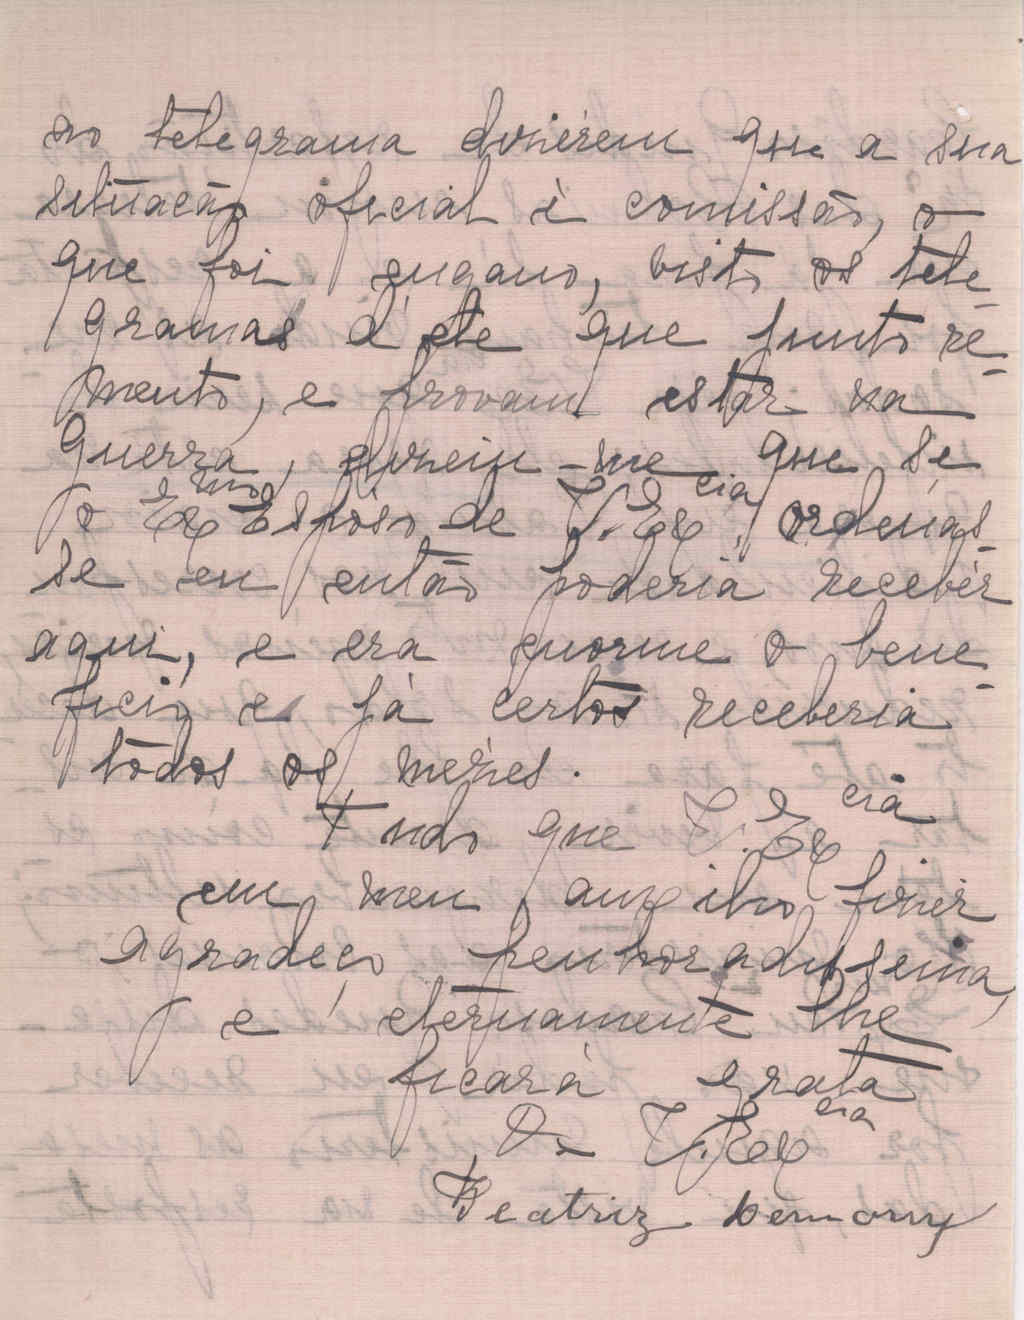 no telegrama dizièrem que a sua
situação oficial è comissão, o
que foi engano, visto os tele-
gramas d'ele que junto re-
meto, e provam estar na
Guerra, dizem-me que se
o Exmo Espôso de V. Excia ordenas-
se eu então poderia recebêr
aqui, e era enorme o bene-
ficio e já certos receberia
tôdos os mezes.
Tudo que V. Excia
em meu auxilio fizér
agradeço penhoradissima,
e eternamente lhe
ficará grata
De V. Excia
Beatriz